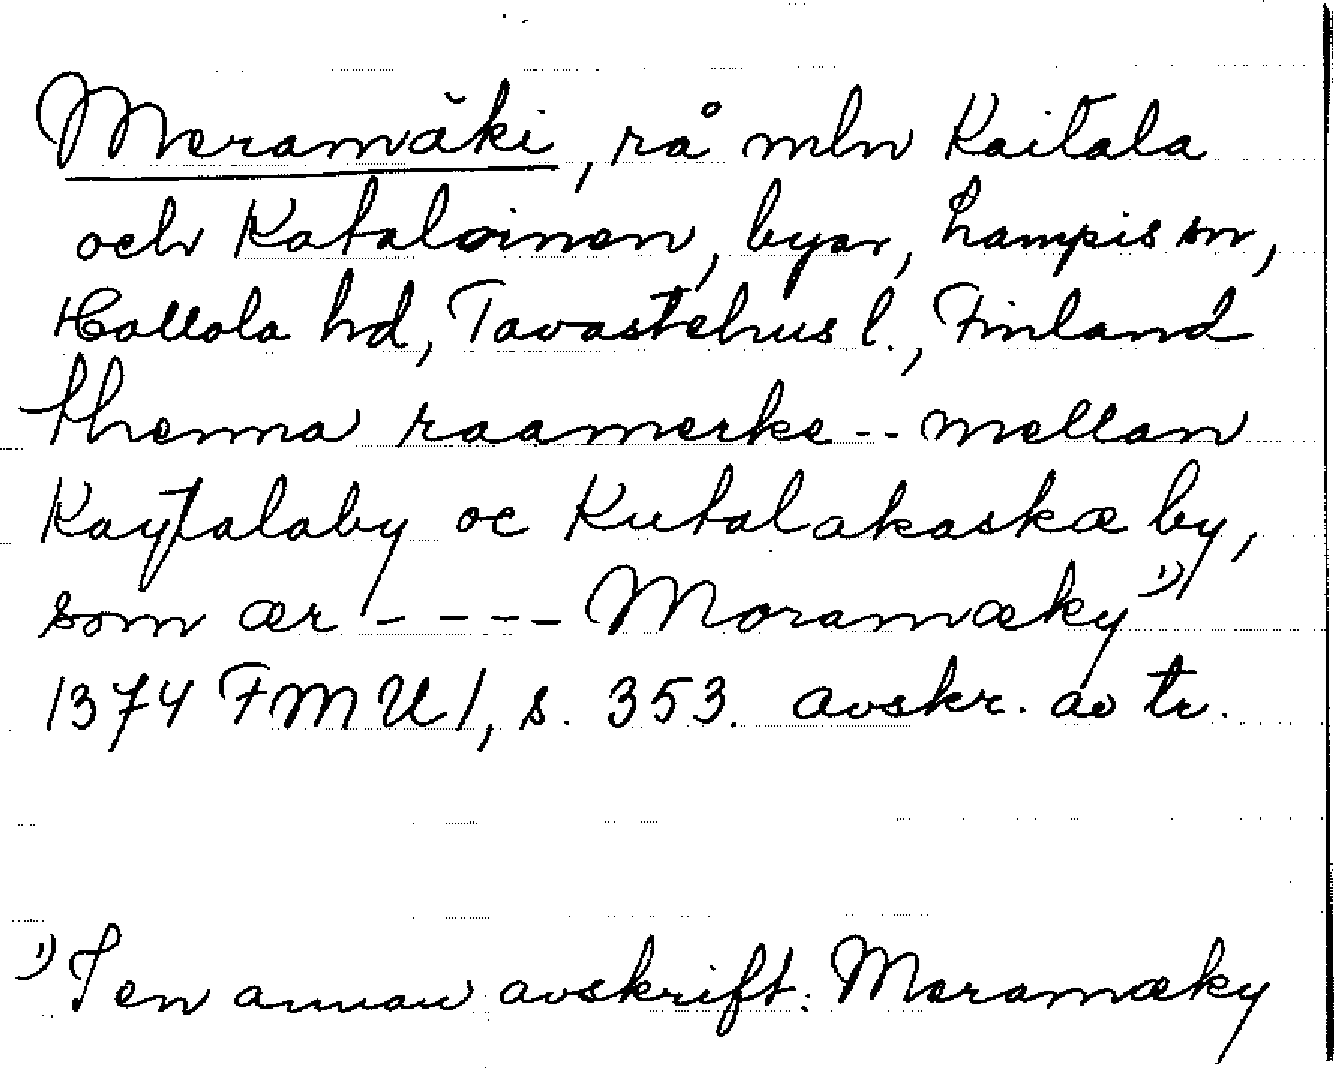 Meramäki, rå mln Kaitala
och Kataloinen, byar, Lampis sn,
Hollola hd, Tavastehus l., Finland
thenna raamerke -- mellan
Kaytalaby oc Kutalakaskæ by,
som ær - - - - Moramæky 1)
1374 FMU 1, s. 353. avskr. av tr.
1) I en annan avskrift: Meramæky